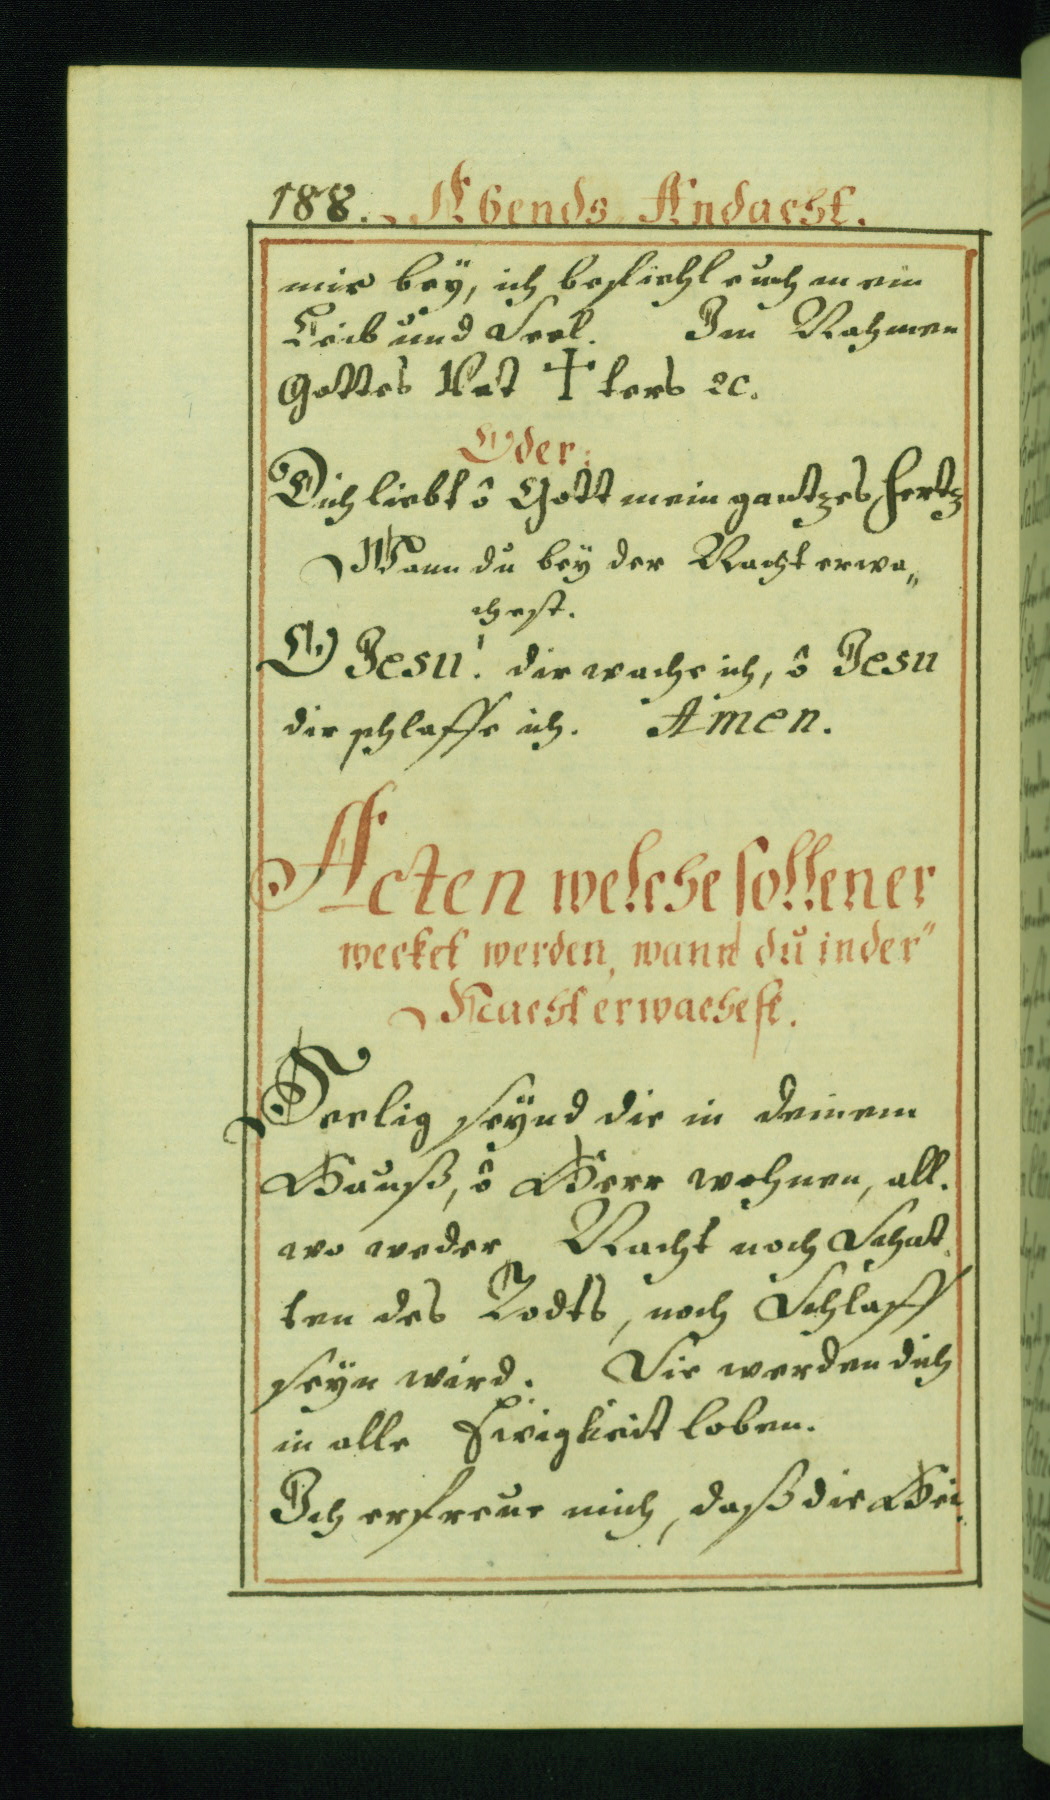 188. Abends Andacht.
mir beÿ, ich befiehl euch mein
Leib und Seel. Im Nahmen
Gottes Vat ☩ ters ꝛc.
Oder:
Dich liebt ô Gott mein gantzes Hertz
Wann du beÿ der Nacht erwa„
chest.
O Jesu! dir wache ich, ô Jesu
dir schlaffe ich. Amen.
Acten welche sollen er
wecket werden, wann dŭ in der"
Nacht erwachest.
Seelig seÿnd die in deinem
Hauß, ô Herr wohnen, all.
wo weder Nacht noch Schat
ten des Todts, noch Schlaff
seyn wird. Sie werden dich
in alle Ewigkeit loben.
Ich erfreue mich, daß die Hei.